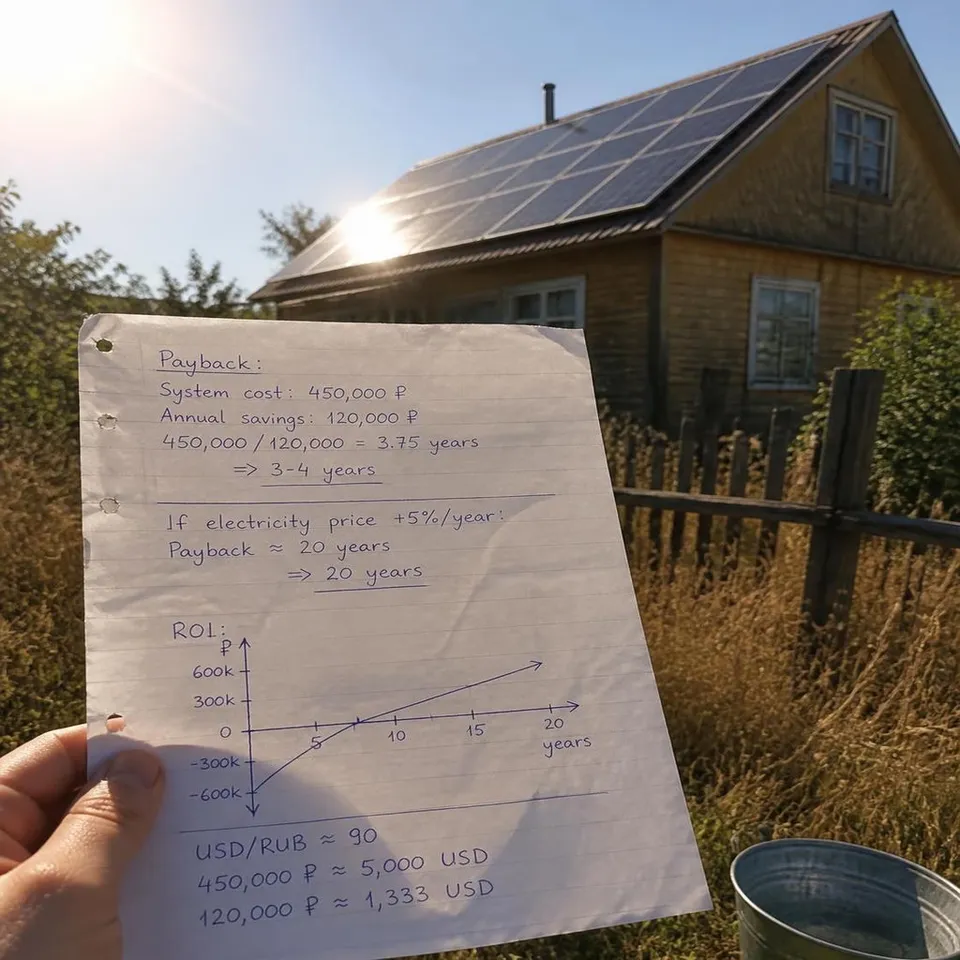 Payback:
System cost: 450,000 ₽
Annual savings: 120,000 ₽
450,000 / 120,000 = 3.75 years
⇒ 3-4 years
If electricity price +5%/year:
Payback ≈ 20 years
⇒ 20 years
ROI:
₽
600k
300k
0
-300k
-600k
5 10 15 20
years
USD/RUB ≈ 90
450,000 ₽ ≈ 5,000 USD
120,000 ₽ ≈ 1,333 USD